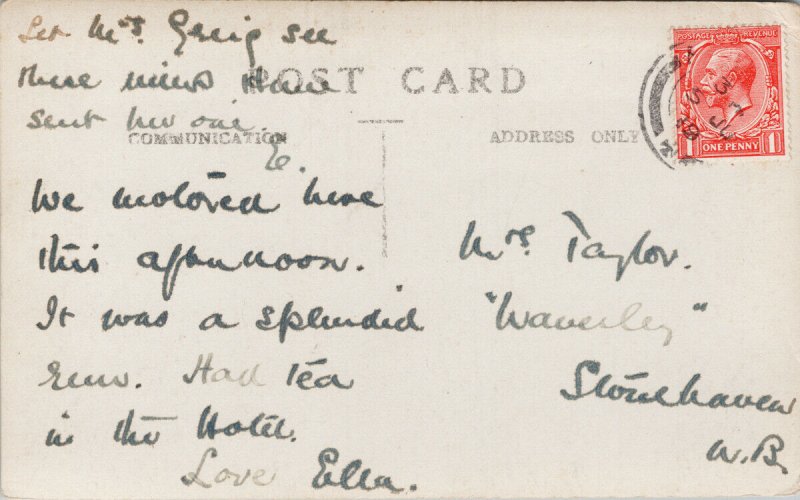 Let Mrs. Greig see
these views Have
sent her one.
E.
POST CARD
COMMUNICATION
ADDRESS ONLY
POSTAGE REVENUE
ONE PENNY
1 1
We motored here
this afternoon.
It was a splendid
run. Had tea
in the Hotel.
Love Ella.
Mrs. Taylor.
"Waverley"
Stonehaven
N.B.